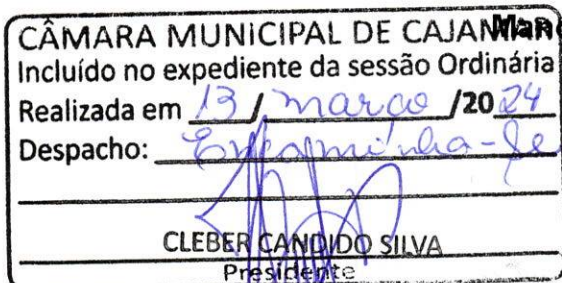 CÂMARA MUNICIPAL DE CAJAMAR
Incluído no expediente da sessão Ordinária
Realizada em 13 / março /2024
Despacho: Encaminha-se
CLEBER CANDIDO SILVA
Presidente